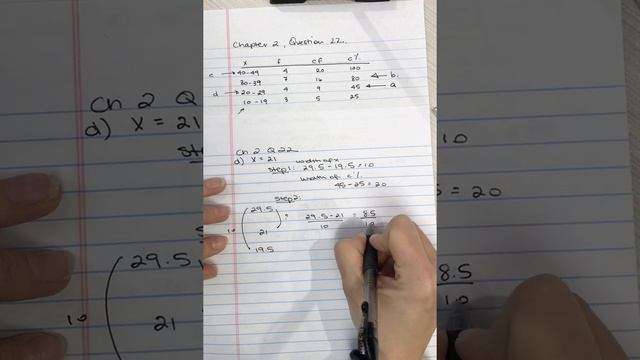 Chapter 2, Question 22.
x f cf c%
c → 40-49 4 20 100
30-39 7 16 80 ← b.
d → 20-29 4 9 45 ← a
10-19 3 5 25
Ch 2 Q 22
d) x = 21 width of x
Step 1: 29.5 - 19.5 = 10
width of c%
45 - 25 = 20
Step 2:
29.5
21
19.5
10
29.5 - 21 = 8.5
10 10
Ch 2 Q
d) X = 21
29.5
10
21
10
= 20
8.5
10